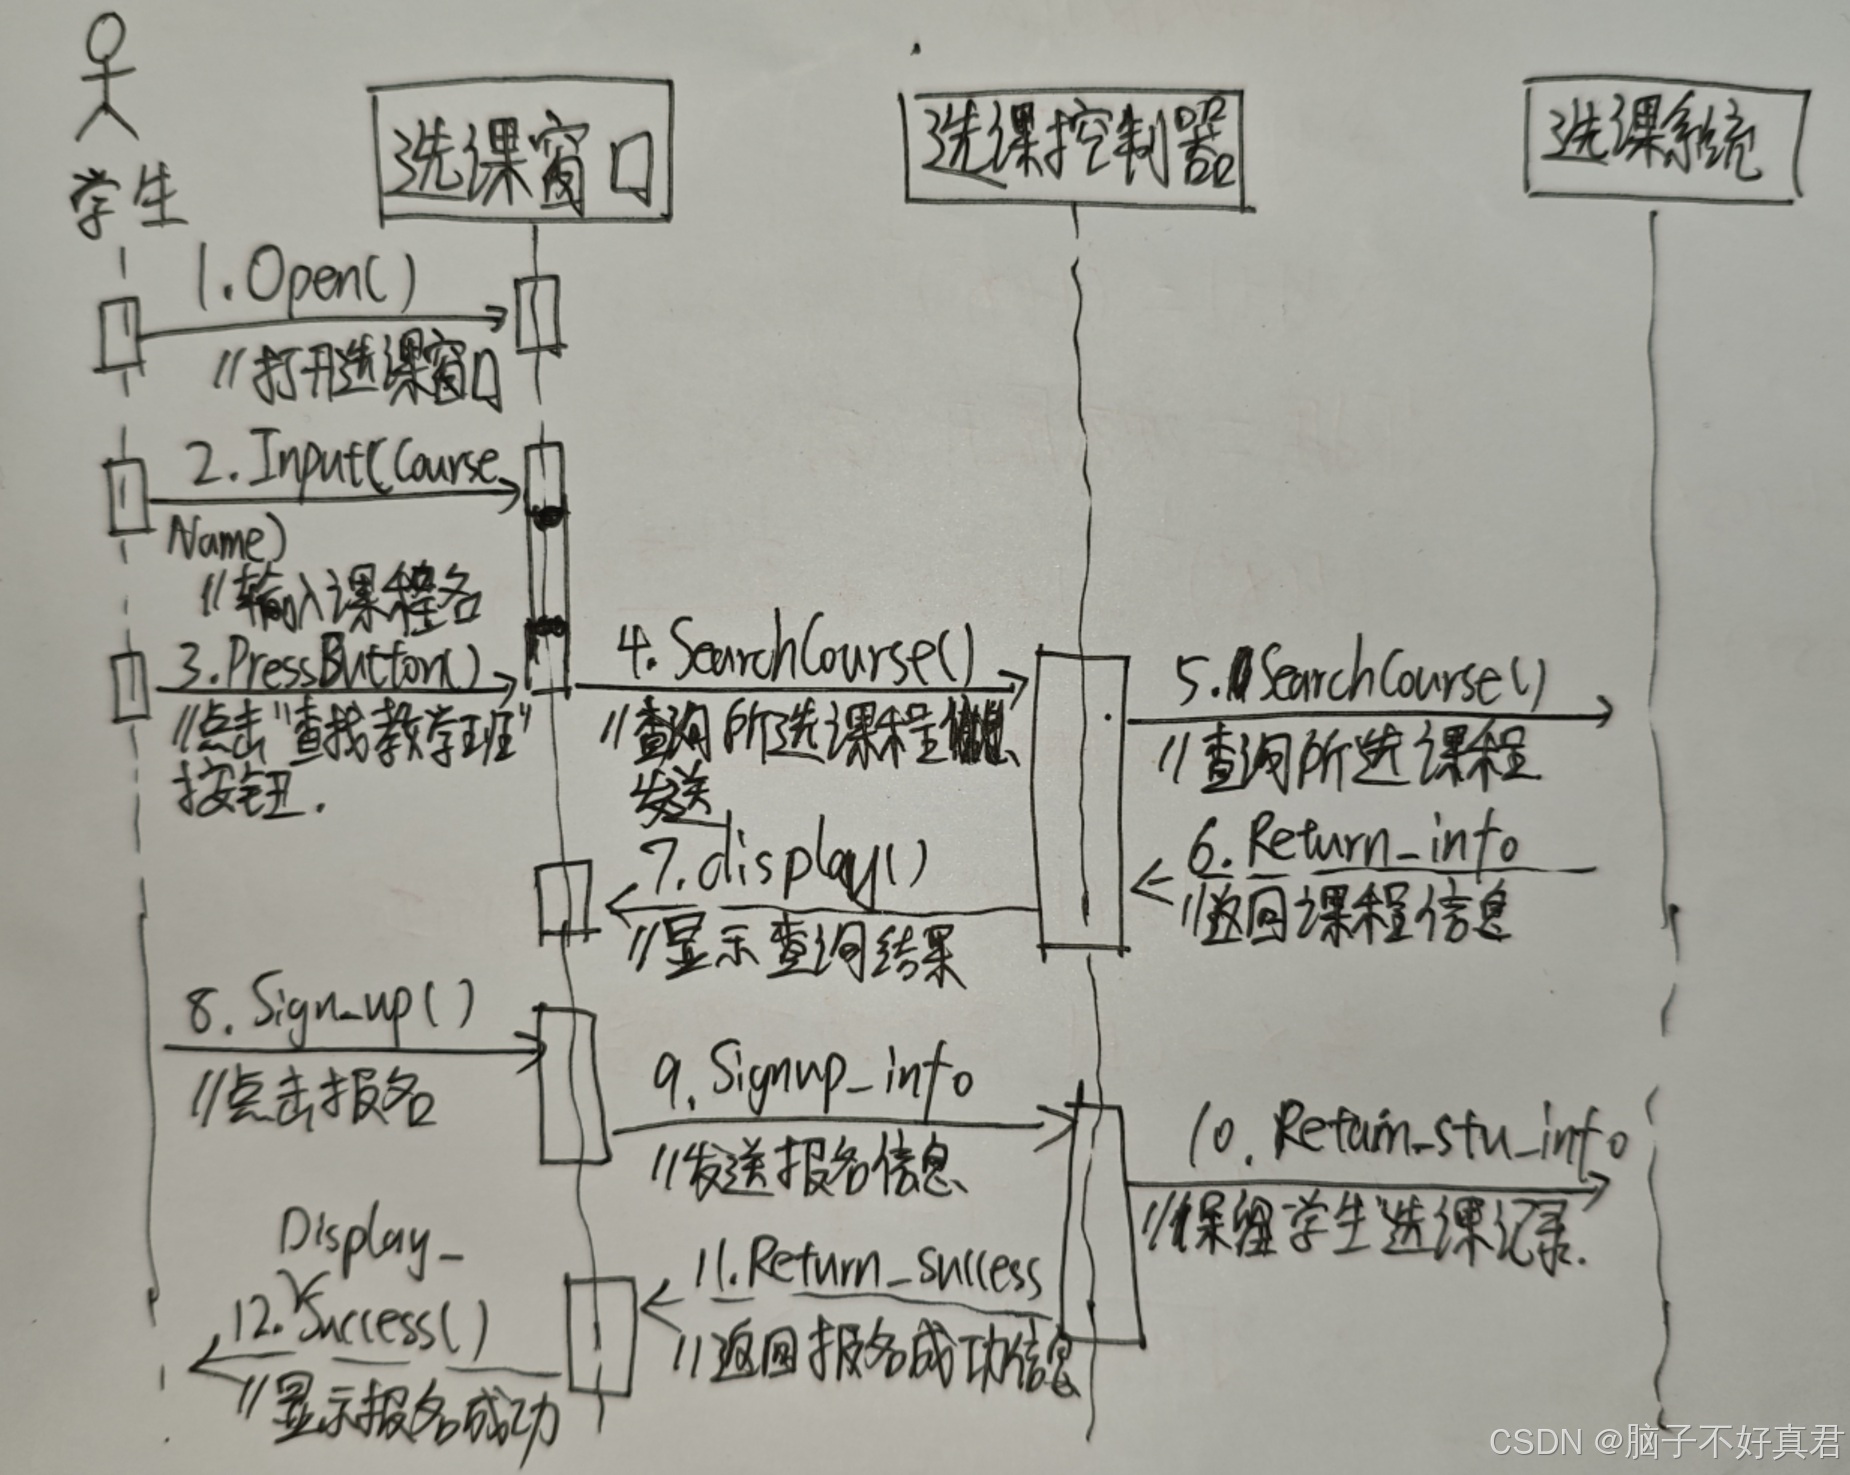 学生
选课窗口
选课控制器
选课系统
1.Open()
//打开选课窗口
2.Input(Course
Name)
//输入课程名
3.PressButton()
//点击"查找教学班"
按钮.
4.SearchCourse()
//查询所选课程信息
发送
5.SearchCourse()
//查询所选课程
6.Return_info
//返回课程信息
7.display()
//显示查询结果
8.Sign_up()
//点击报名
9.Signup_info
//发送报名信息
10.Retain_stu_info
//保留学生选课记录.
11.Return_success
//返回报名成功信息
Display_
12.Success()
//显示报名成功
CSDN @脑子不好真君